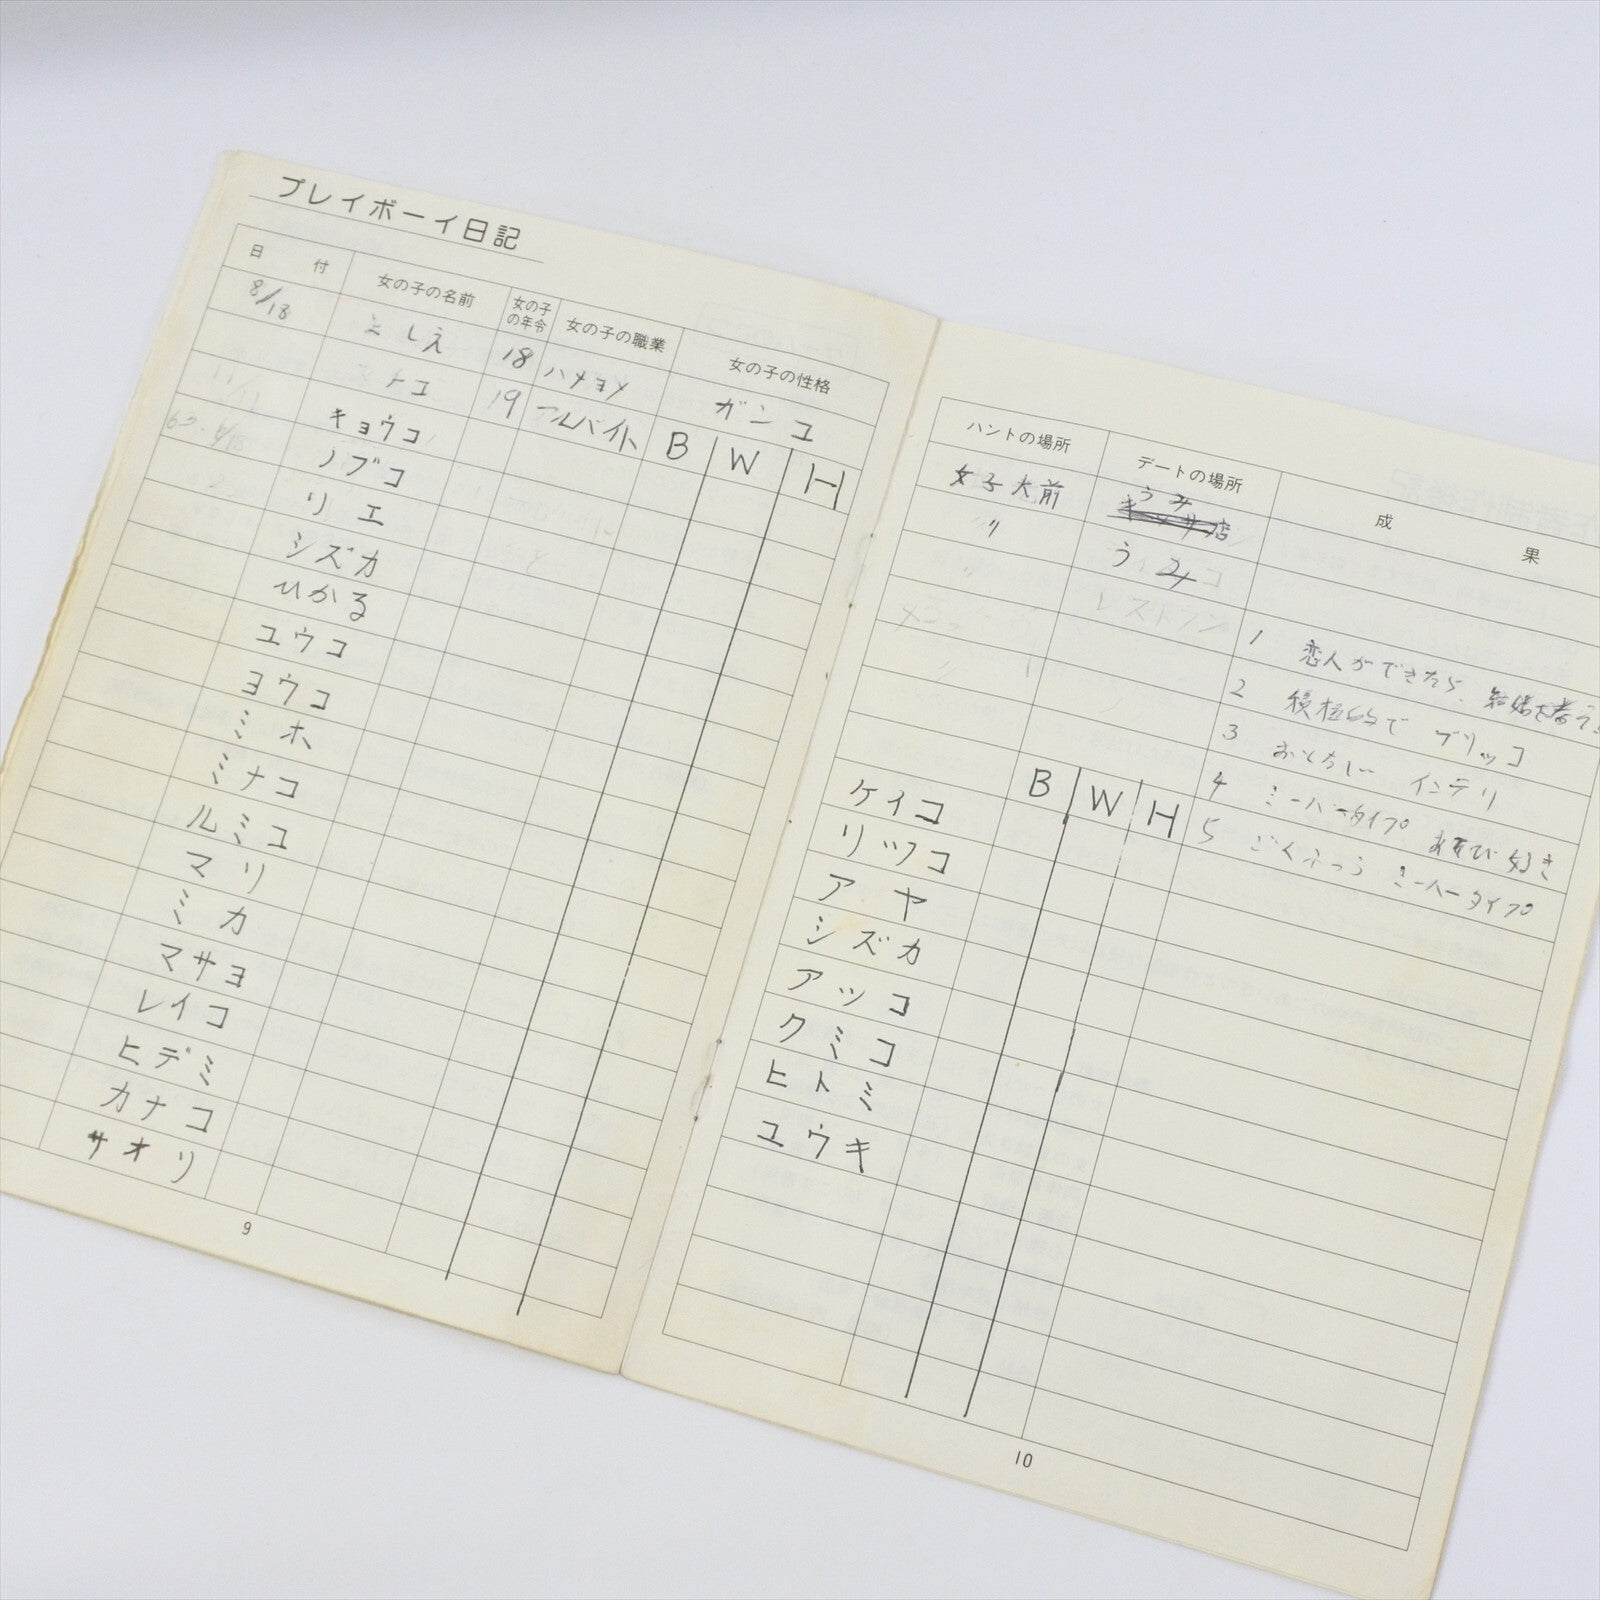 プレイボーイ日記
日 付 女の子の名前 女の子の年令 女の子の職業 女の子の性格
8/18 としえ 18 ハナヨメ ガンコ
トコ 19 アルバイト B W H
キョウコ
ノブコ
リエ
シズカ
ひかる
ユウコ
ヨウコ
ミホ
ミナコ
ルミコ
マリ
ミカ
マサヨ
レイコ
ヒデミ
カナコ
サオリ
9
ハントの場所 デートの場所 成 果
女子大前 うみ
〃 うみ
レストラン
1 恋人ができたら、結婚を考える
2 積極的で ブリッコ
3 おとなしい インテリ
B W H 4 ミーハータイプ あそび好き
ケイコ 5 ごくふつう ミーハータイプ
リツコ
アヤ
シズカ
アツコ
クミコ
ヒトミ
ユウキ
10